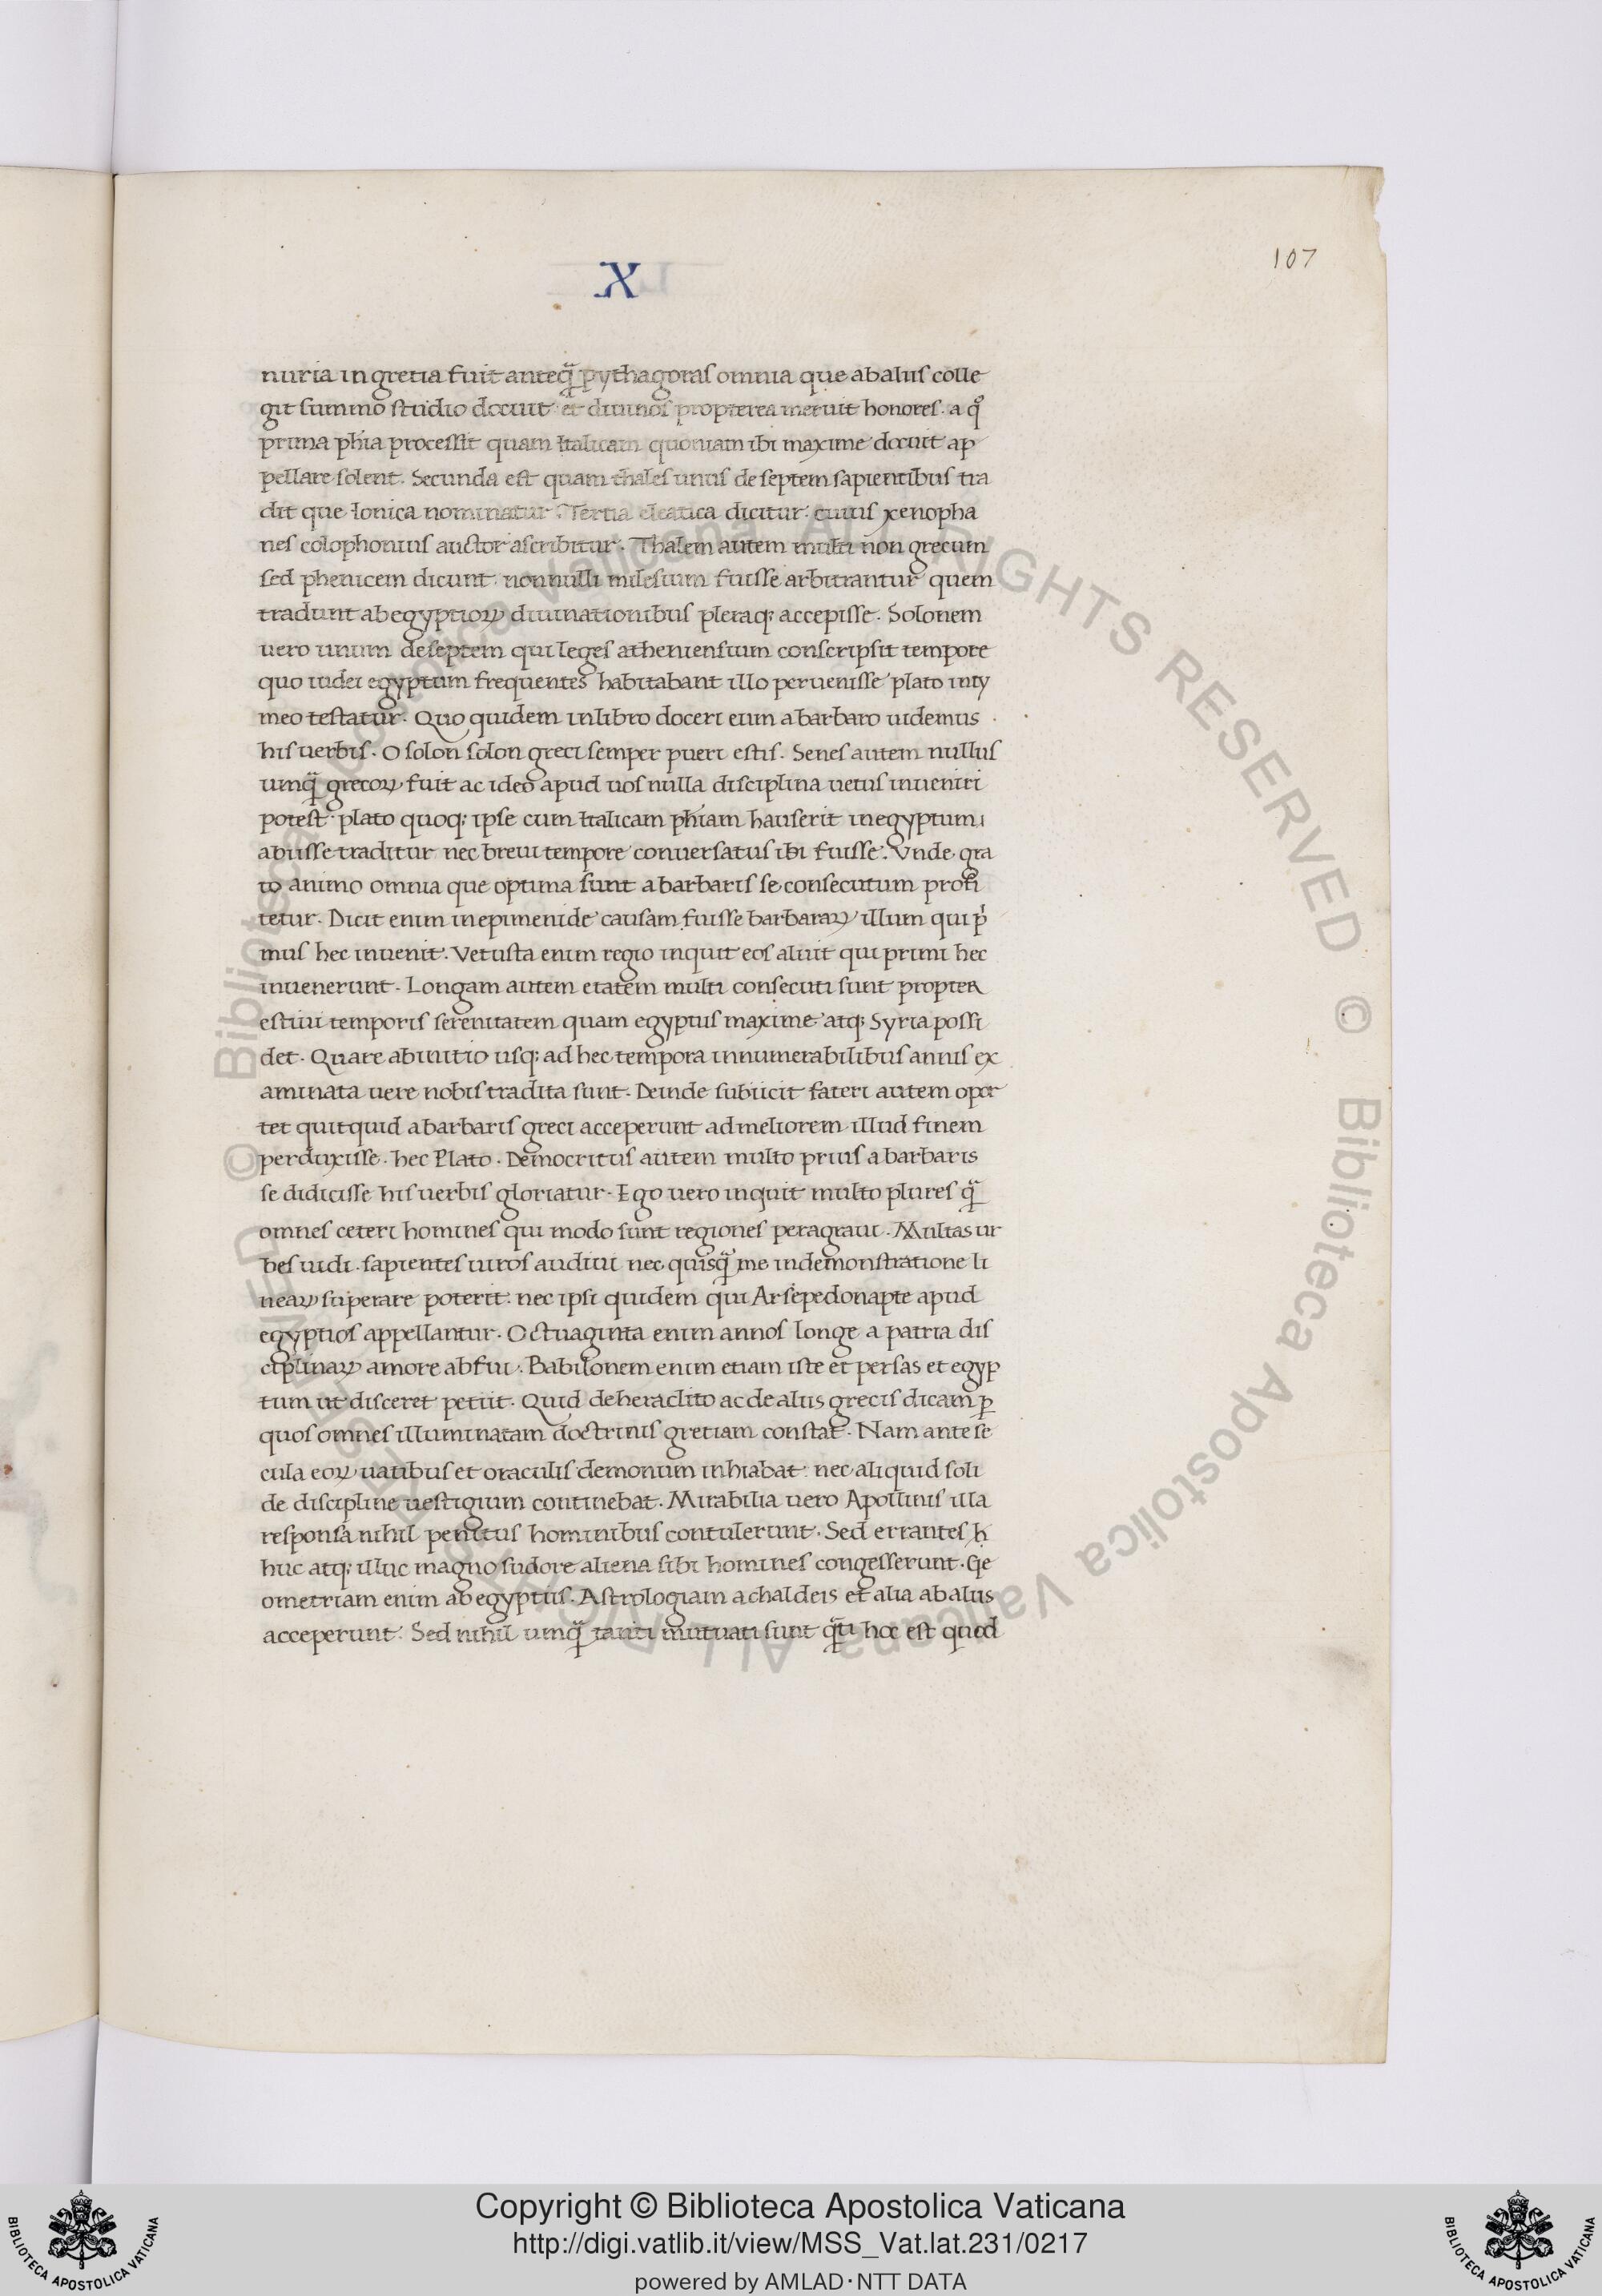 107
X
nuria in gretia fuit anteq̃ pythagoras omnia que ab aliis colle
git summo studio docuit et diuinos propterea meruit honores. a qͦ
prima phia processit quam Italicam quoniam ibi maxime docuit ap
pellare solent. Secunda est quam thales unus de septem sapientibus tra
dit que Ionica nominatur. Tertia eleatica dicitur. cuius xenopha
nes colophonius auctor ascribitur. Thalem autem multi non grecum
sed phenicem dicunt. nonnulli milesium fuisse arbitrantur quem
tradunt ab egyptioꝝ diuinationibus pleraq; accepisse. Solonem
uero unum de septem qui leges atheniensium conscripsit tempore
quo iudei egyptum frequentes habitabant illo peruenisse plato in ty
meo testatur. Quo quidem in libro doceri eum a barbaro uidemus
his uerbis. O solon solon greci semper pueri estis. Senes autem nullus
umq̃ grecoꝝ fuit ac ideo apud uos nulla disciplina uetus inueniri
potest. plato quoq; ipse cum Italicam phiam hauserit in egyptum
abiisse traditur nec breui tempore conuersatus ibi fuisse. Vnde gra
to animo omnia que optima sunt a barbaris se consecutum profi
tetur. Dicit enim in epimenide causam fuisse barbaraꝝ illum qui pͥ
mus hec inuenit. Vetusta enim regio inquit eos aliuit qui primi hec
inuenerunt. Longam autem etatem multi consecuti sunt propter
estiui temporis serenitatem quam egyptus maxime atq; Syria possi
det. Quare ab initio usq; ad hec tempora innumerabilibus annis ex
aminata uere nobis tradita sunt. Deinde subiicit fateri autem opor
tet quitquid a barbaris greci acceperunt ad meliorem illud finem
perduxisse. hec Plato. Democritus autem multo prius a barbaris
se didicisse his uerbis gloriatur. Ego uero inquit multo plures q̃
omnes ceteri homines qui modo sunt regiones peragraui. Multas ur
bes uidi. sapientes uiros audiui nec quisq̃ me in demonstratione li
neaꝝ superare poterit. nec ipsi quidem qui Arsepedonapte apud
egyptios appellantur. Octuaginta enim annos longe a patria dis
ciplinaꝝ amore abfui. Babilonem enim etiam iste et persas et egyp
tum ut disceret petiit. Quid de heraclito ac de aliis grecis dicam ꝑ
quos omnes illuminatam doctrinis gretiam constat. Nam ante se
cula eoꝝ uatibus et oraculis demonum inhiabat. nec aliquid soli
de discipline uestigium continebat. Mirabilia uero Apollinis illa
responsa nihil penitus hominibus contulerunt. Sed errantes h
huc atq; illuc magno sudore aliena sibi homines congesserunt. Ge
ometriam enim ab egyptiis. Astrologiam a chaldeis et alia ab aliis
acceperunt. Sed nihil umq̃ tanti mutuati sunt q̃ti hoc est quod
© Biblioteca Apostolica Vaticana ALL RIGHTS RESERVED
© Biblioteca Apostolica Vaticana ALL RIGHTS RESERVED
Copyright © Biblioteca Apostolica Vaticana
http://digi.vatlib.it/view/MSS_Vat.lat.231/0217
powered by AMLAD·NTT DATA
BIBLIOTECA APOSTOLICA VATICANA
BIBLIOTECA APOSTOLICA VATICANA